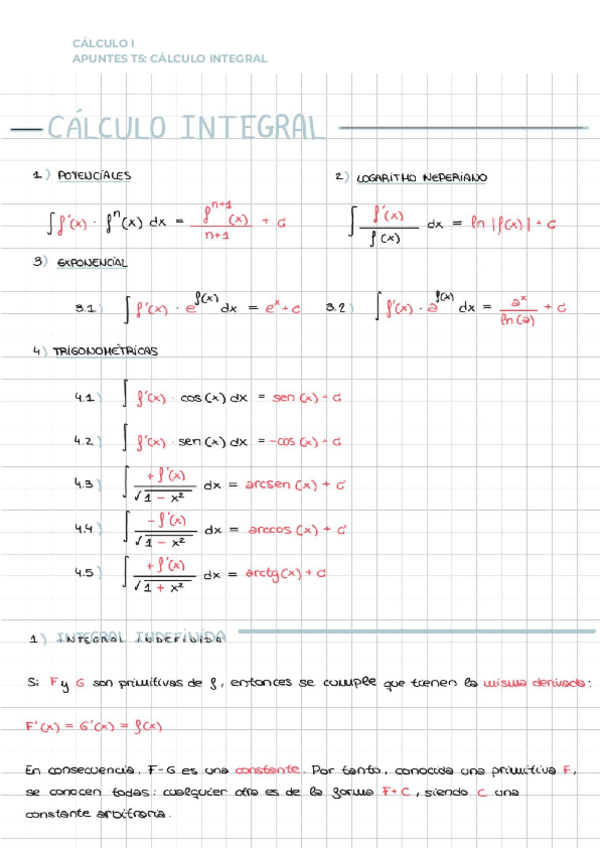 CÁLCULO I
APUNTES T5: CÁLCULO INTEGRAL
CÁLCULO INTEGRAL
1) POTENCIALES
∫ f'(x) · fⁿ(x) dx = fⁿ⁺¹(x) / n+1 + C
2) LOGARITMO NEPERIANO
∫ f'(x) / f(x) dx = ln |f(x)| + C
3) EXPONENCIAL
3.1) ∫ f'(x) · e^f(x) dx = eˣ + C
3.2) ∫ f'(x) · a^f(x) dx = aˣ / ln(a) + C
4) TRIGONOMÉTRICAS
4.1) ∫ f'(x) · cos(x) dx = sen(x) + C
4.2) ∫ f'(x) · sen(x) dx = -cos(x) + C
4.3) ∫ +f'(x) / √1 - x² dx = arcsen(x) + C
4.4) ∫ -f'(x) / √1 - x² dx = arccos(x) + C
4.5) ∫ +f'(x) / √1 + x² dx = arctg(x) + C
1) INTEGRAL INDEFINIDA
Si F y G son primitivas de f, entonces se cumple que tienen la misma derivada:
F'(x) = G'(x) = f(x)
En consecuencia, F-G es una constante. Por tanto, conocida una primitiva F,
se conocen todas: cualquier otra es de la forma F+C, siendo C una
constante arbitraria.